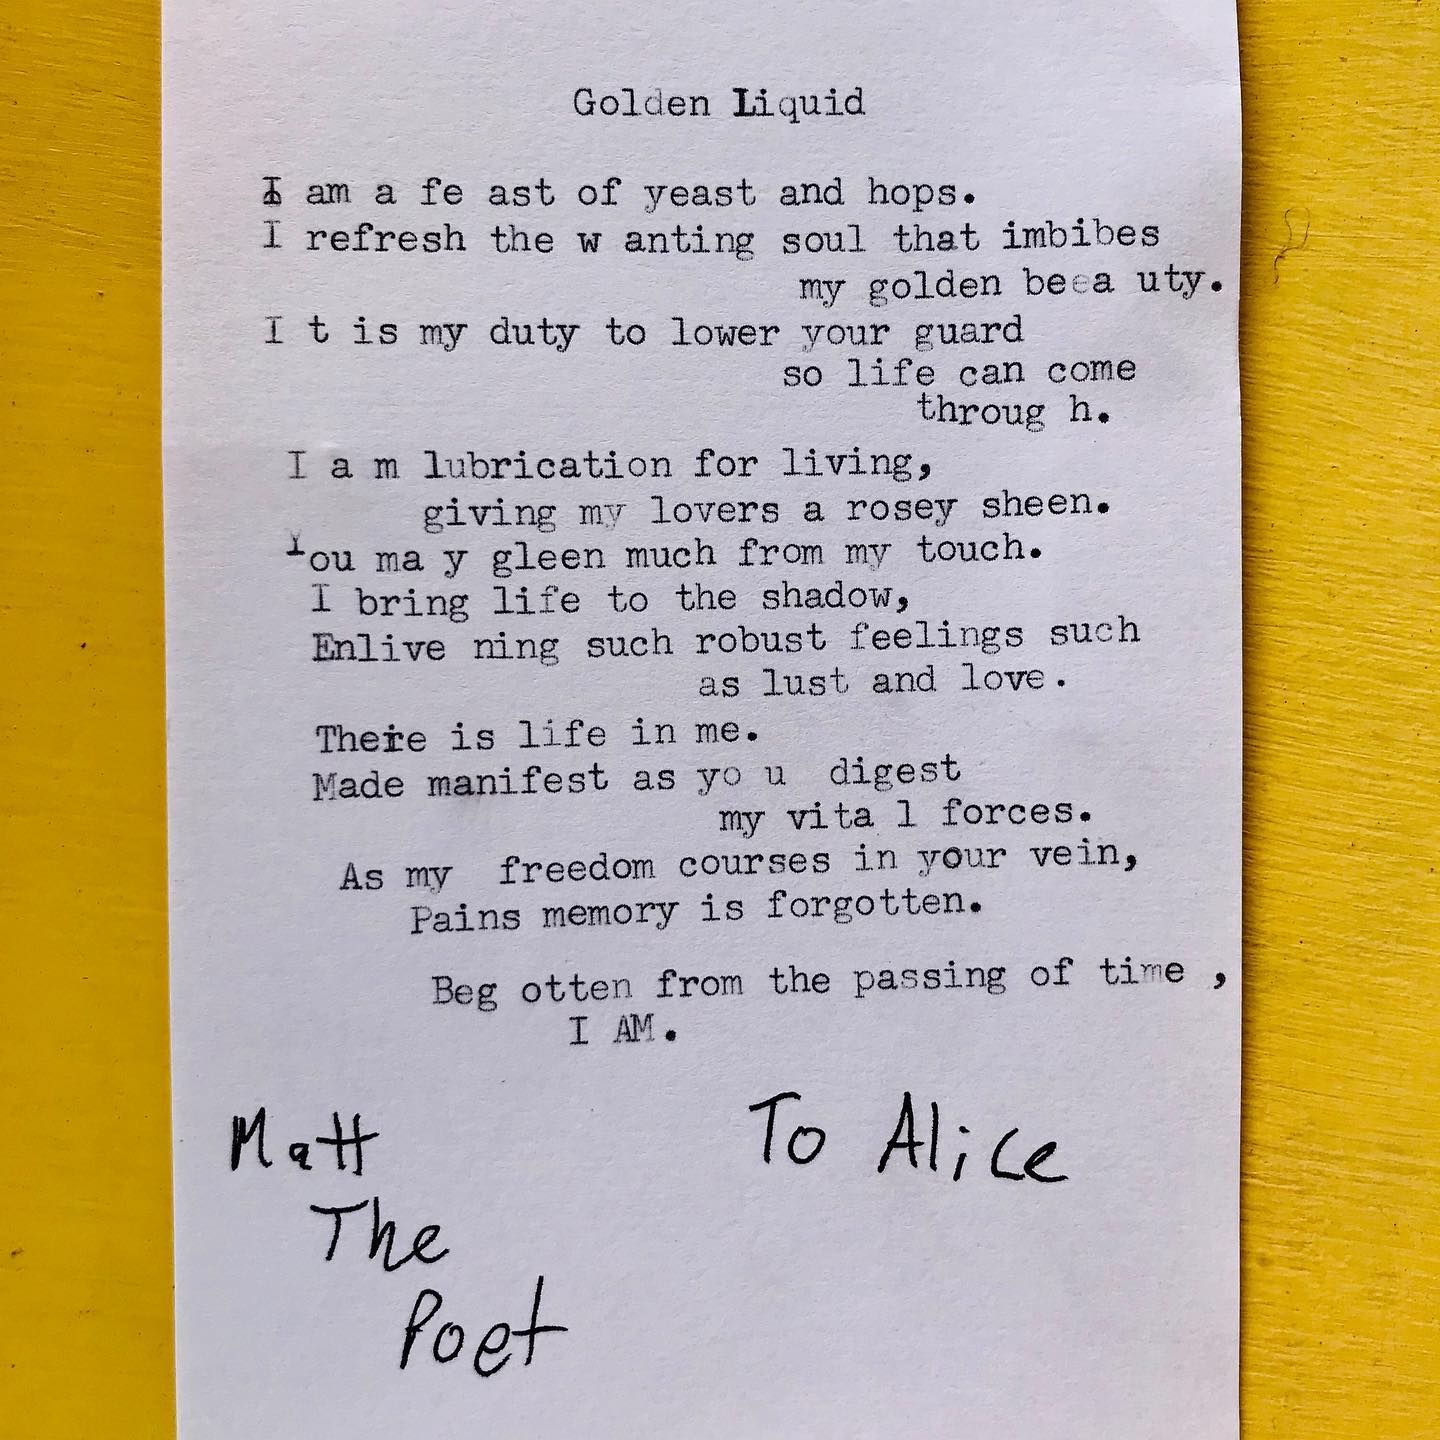 Golden Liquid
I am a fe ast of yeast and hops.
I refresh the w anting soul that imbibes
my golden beea uty.
I t is my duty to lower your guard
so life can come
throug h.
I a m lubrication for living,
giving my lovers a rosey sheen.
You ma y gleen much from my touch.
I bring life to the shadow,
Enlive ning such robust feelings such
as lust and love.
There is life in me.
Made manifest as yo u digest
my vita l forces.
As my freedom courses in your vein,
Pains memory is forgotten.
Beg otten from the passing of time ,
I AM.
Matt
The
Poet
To Alice